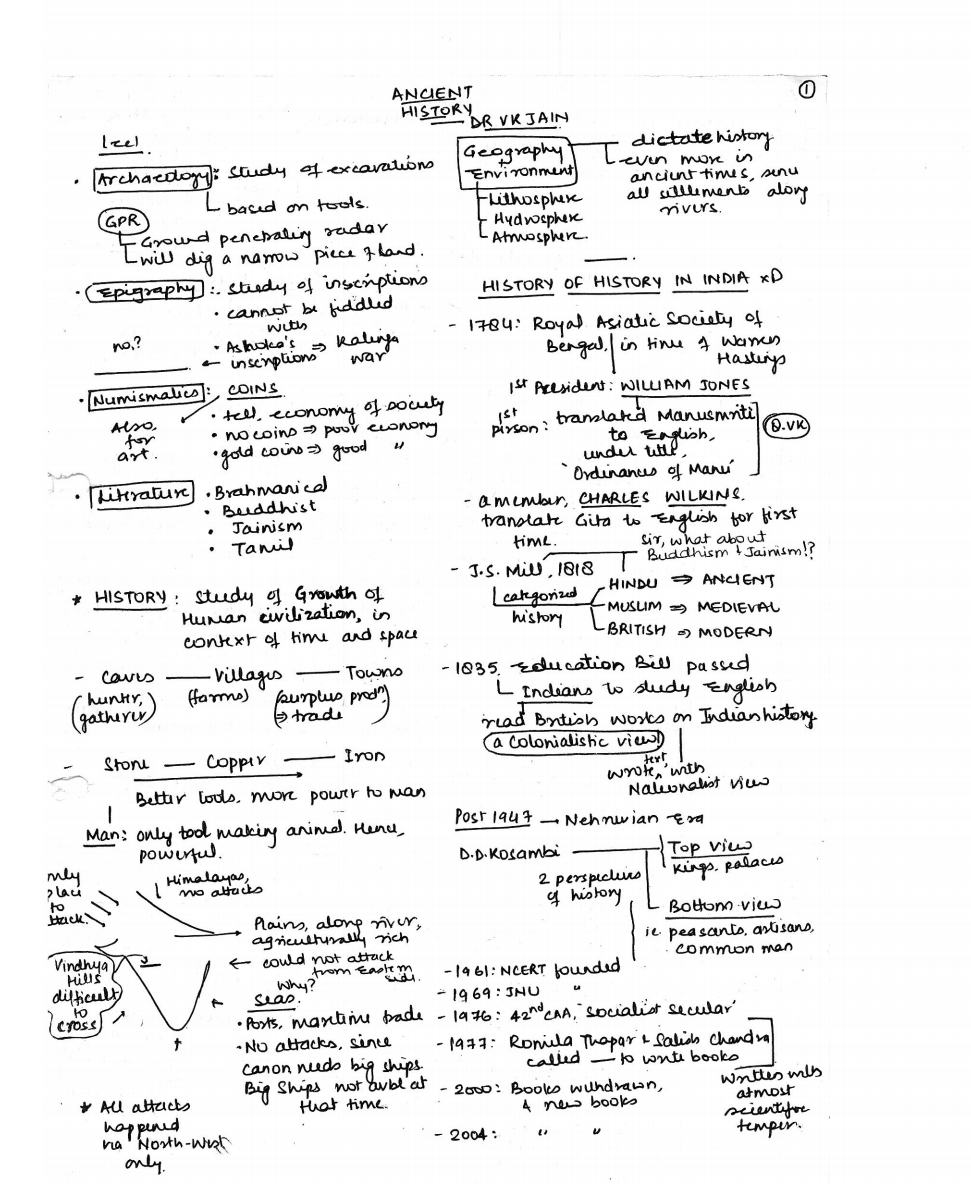 ①
ANCIENT
HISTORY
DR VK JAIN
• Archaeology: study of excavations
based on tools.
GPR
Ground penetrating radar
will dig a narrow piece of land.
• Epigraphy: study of inscriptions
• cannot be fiddled
with
no.?
• Ashoka's ⇒ Kalinga
← inscriptions war
• Numismatics: COINS
Also,
for
art.
• tell, economy of society
• no coins ⇒ poor economy
• gold coins ⇒ good "
• Literature
• Brahmanical
• Buddhist
• Jainism
• Tamil
* HISTORY: study of Growth of
Human civilization, in
context of time and space
- Caves — Villages — Towns
(hunter, gatherer) (farms) (surplus prodn ⇒ trade)
- Stone — Copper — Iron
Better tools, more power to man
Man: only tool making animal. Hence,
powerful.
Himalayas,
no attacks
to
attack.
Plains, along river,
agriculturally rich
← could not attack
from Eastern
side.
Why?
Vindhya
Hills
difficult
to
cross
Seas.
• Ports, maritime trade
• No attacks, since
canon needs big ships.
Big Ships not avbl at
that time.
* All attacks
happened
via North-West
only.
Geography
+
Environment
Lithosphere
Hydrosphere
Atmosphere.
dictate history
even more in
ancient times, hence
all settlements along
rivers.
HISTORY OF HISTORY IN INDIA xD
- 1784: Royal Asiatic Society of
Bengal, in time of Warren
Hastings
1st President: WILLIAM JONES
1st person: translated Manusmriti
to English,
under title,
'Ordinances of Manu'
Q.VK
- a member, CHARLES WILKINS.
translate Gita to English for first
time.
Sir, what about
Buddhism + Jainism!?
- J.S. Mill, 1818
categorized
history
HINDU ⇒ ANCIENT
MUSLIM ⇒ MEDIEVAL
BRITISH ⇒ MODERN
- 1835. Education Bill passed
Indians to study English
read British works on Indian history
(a colonialistic view)
wrote text with
Nationalist view
Post 1947 → Nehruvian Era
D.D. Kosambi
2 perspectives
of history
Top view
Kings, palaces
Bottom view
ie. peasants, artisans,
common man
- 1961: NCERT founded
- 1969: JNU "
- 1976: 42nd CAA, 'socialist secular'
- 1977: Romila Thapar + Satish Chandra
called — to write books
Written with
atmost
scientific
temper.
- 2000: Books withdrawn,
& new books
- 2004: " "